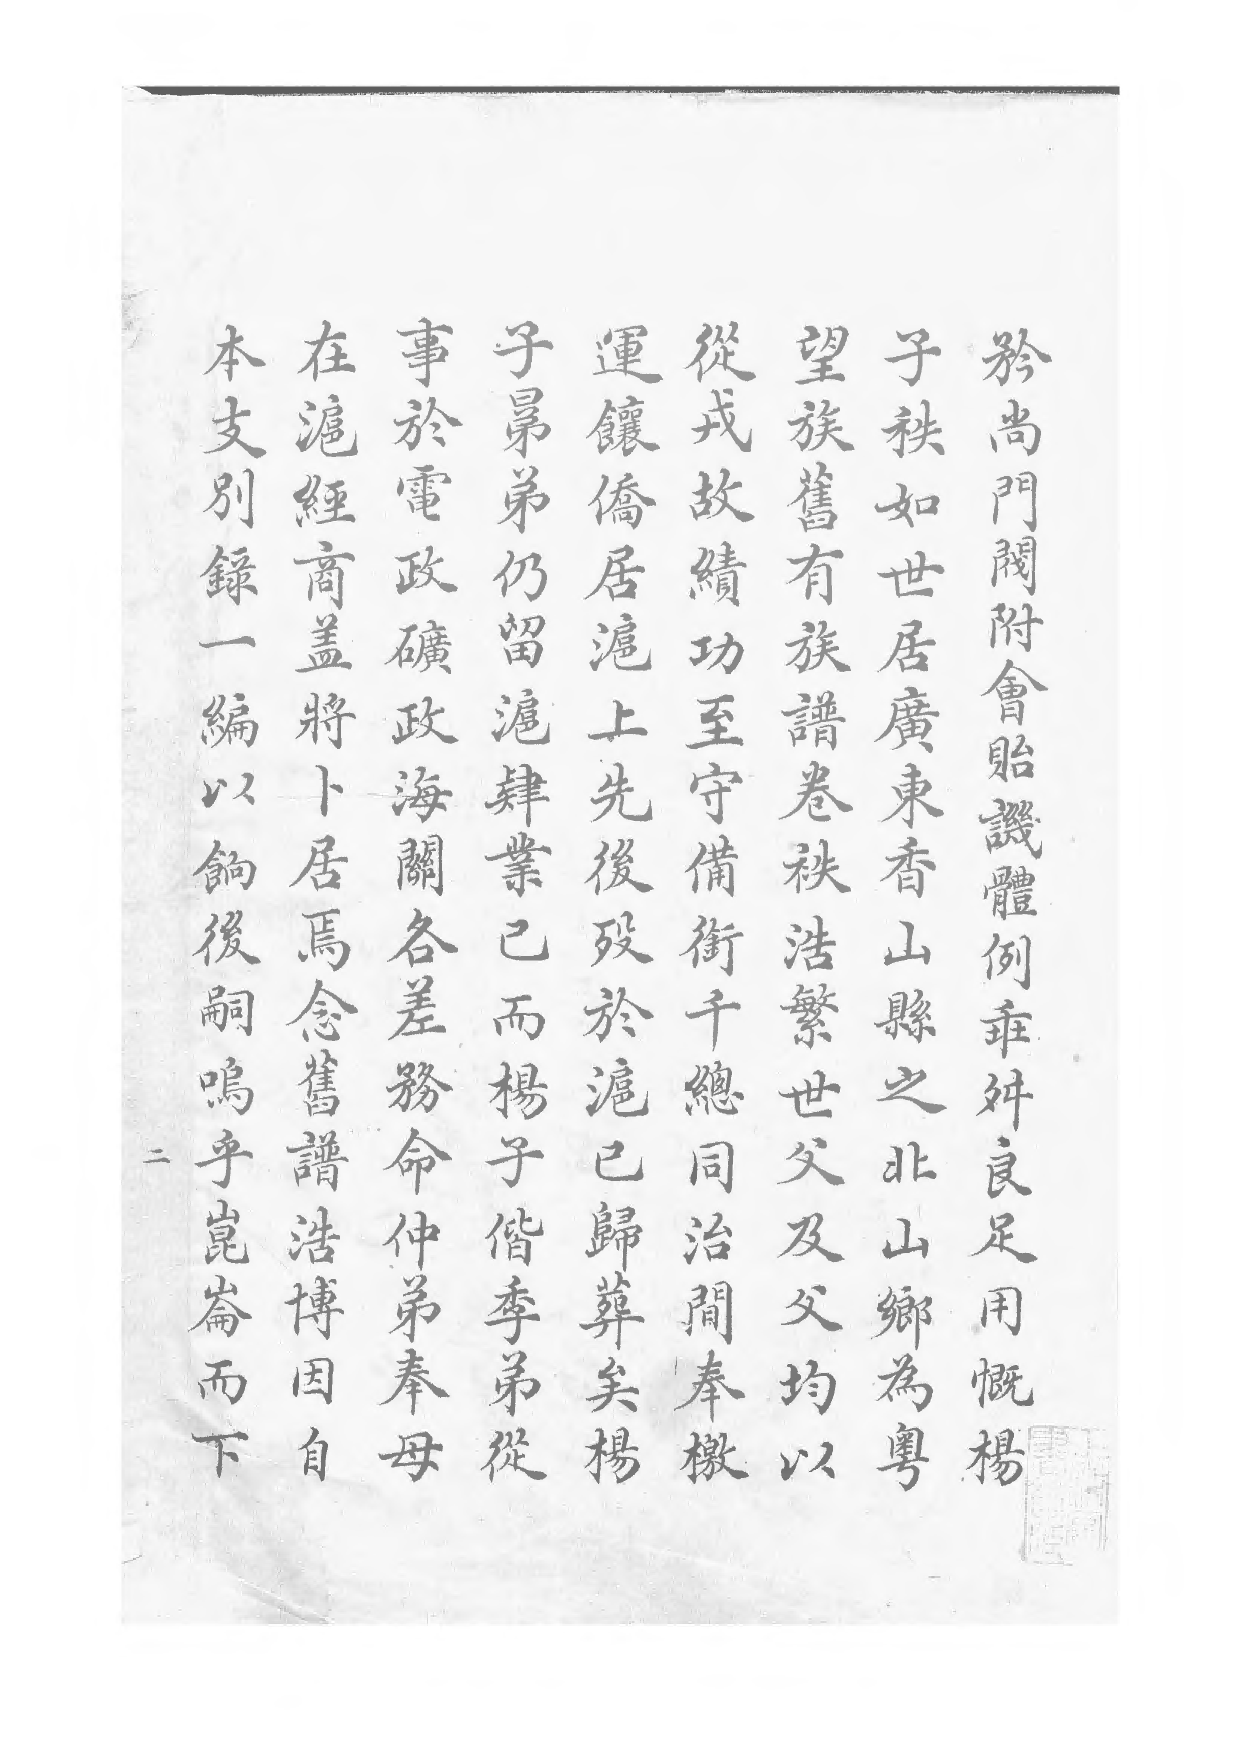 矜尚門閥附會貽譏體例乖舛良足用慨楊
子秩如世居廣東香山縣之北山鄉為粵
望族舊有族譜卷秩浩繁世父及父均以
從戎故績功至守備銜千總同治間奉檄
運饟僑居滬上先後歿於滬已歸葬矣楊
子晜弟仍留滬肄業已而楊子偕季弟從
事於電政礦政海關各差務命仲弟奉母
在滬經商盖將卜居焉念舊譜浩博因自
本支別錄一編以餉後嗣嗚乎崑崙而下
二